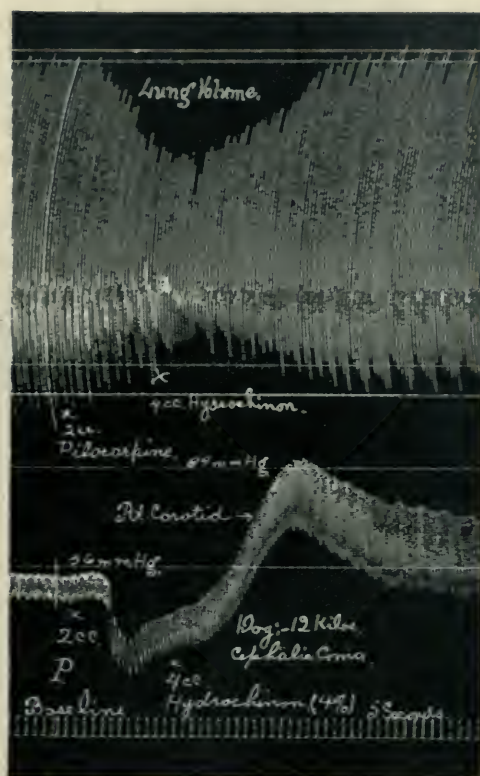 Lung Volume.
x
4cc. Hydrochinon.
x
2cc.
Pilocarpine.
mm Hg
Carotid →
56 mm Hg.
x
2cc.
P
Dog:-12 Kilos
Cephalic Coma
4cc
Hydrochinon (4%)
Base line
5 Seconds